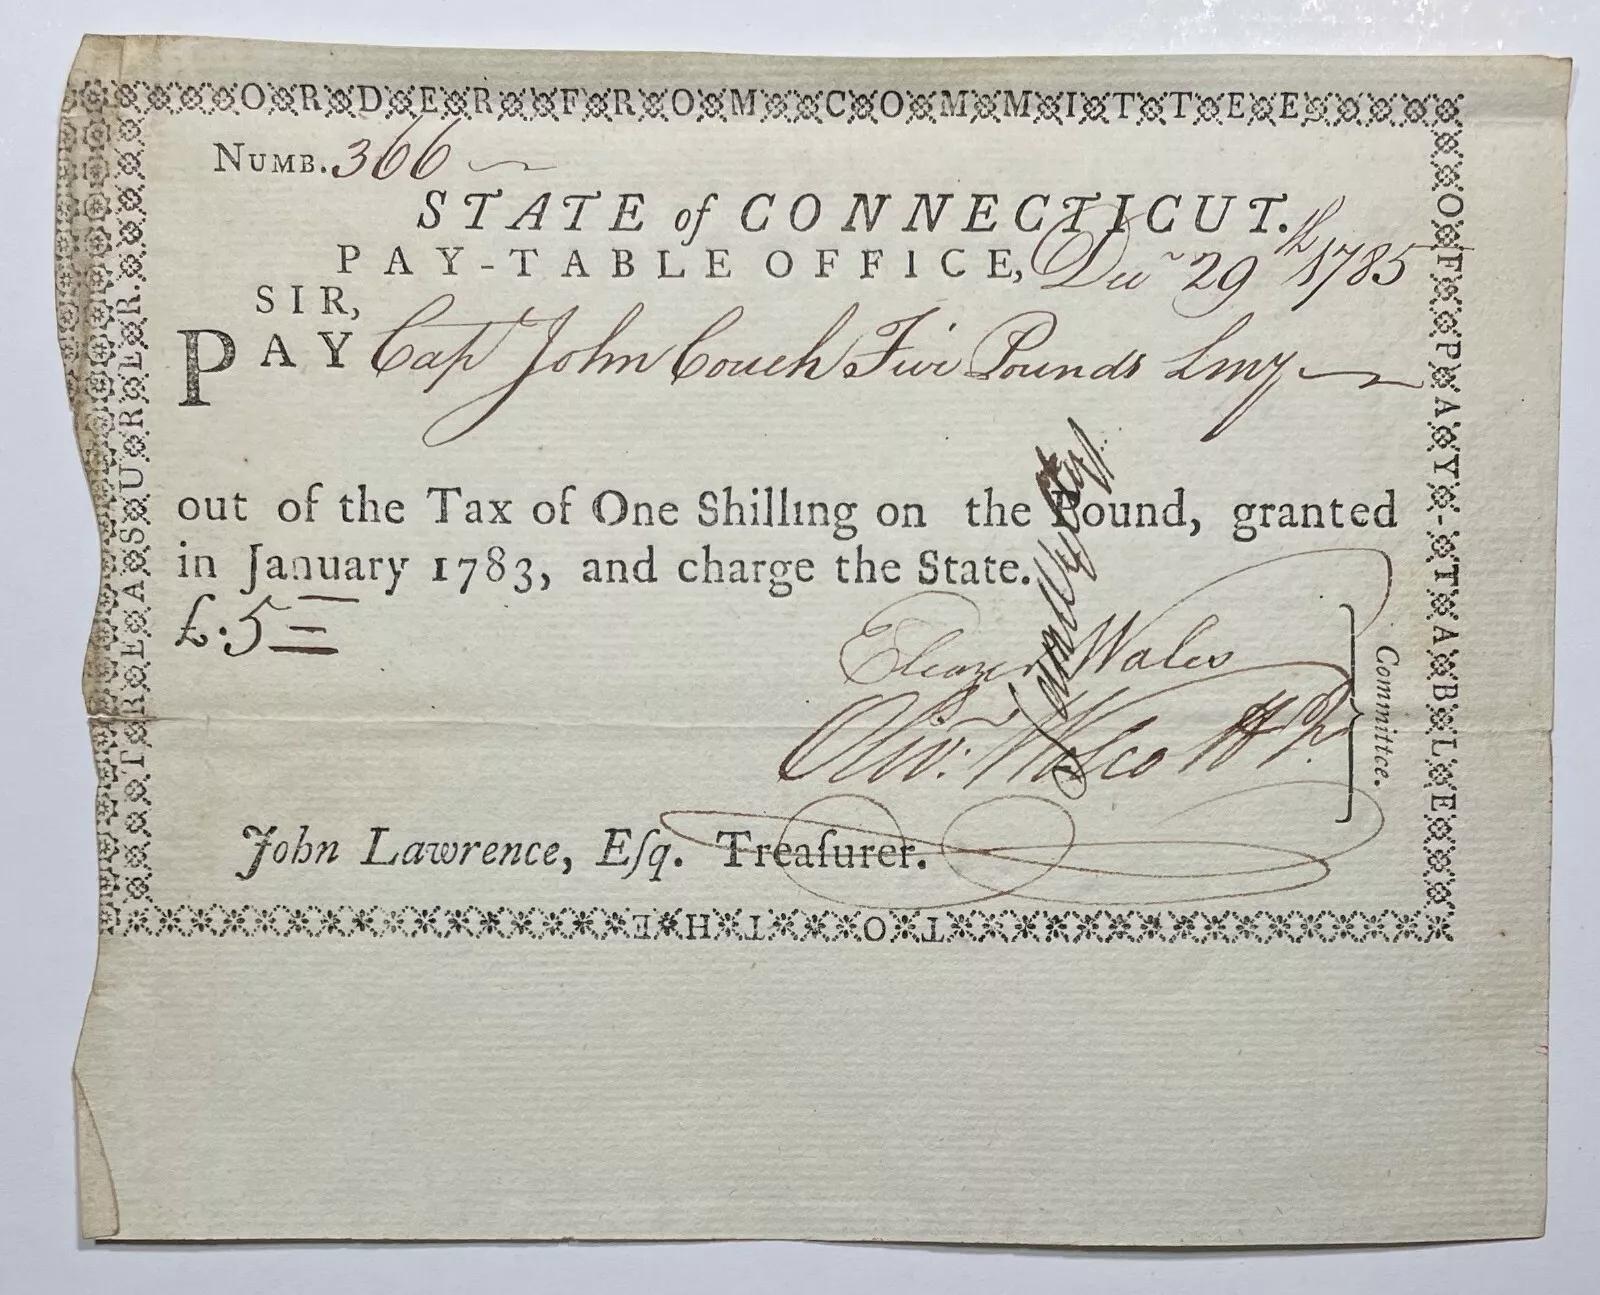 ORDER FROM COMMITTEE
OF PAY-TABLE
TO THE
TREASURER.
NUMB. 366
STATE of CONNECTICUT.
PAY-TABLE OFFICE, Decr 29th 1785
SIR,
PAY Capt John Couch Five Pounds Lmy
out of the Tax of One Shilling on the Pound, granted
in January 1783, and charge the State.
£.5 = =
Eleazer Wales
Olivr. Wolcott Jr.
Committee.
John Lawrence, Eſq. Treaſurer.